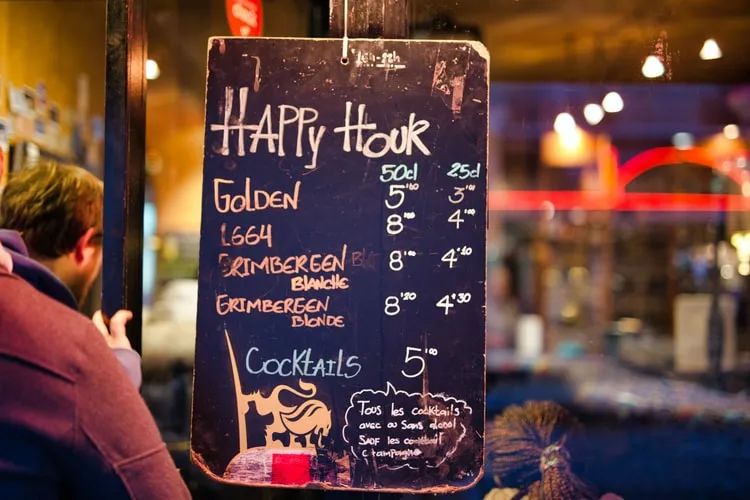 16h-22h
HAPPy HOUR
50cl 25cl
GOLDEN 5 3
1664 8 4
GRIMBERGEN 8 4
BLANCHE
GRIMBERGEN 8'20 4'30
BLONDE
COCKTAILS 5'00
Tous les cocktails
avec ou sans alcool
SAUF les cocktail
champagne